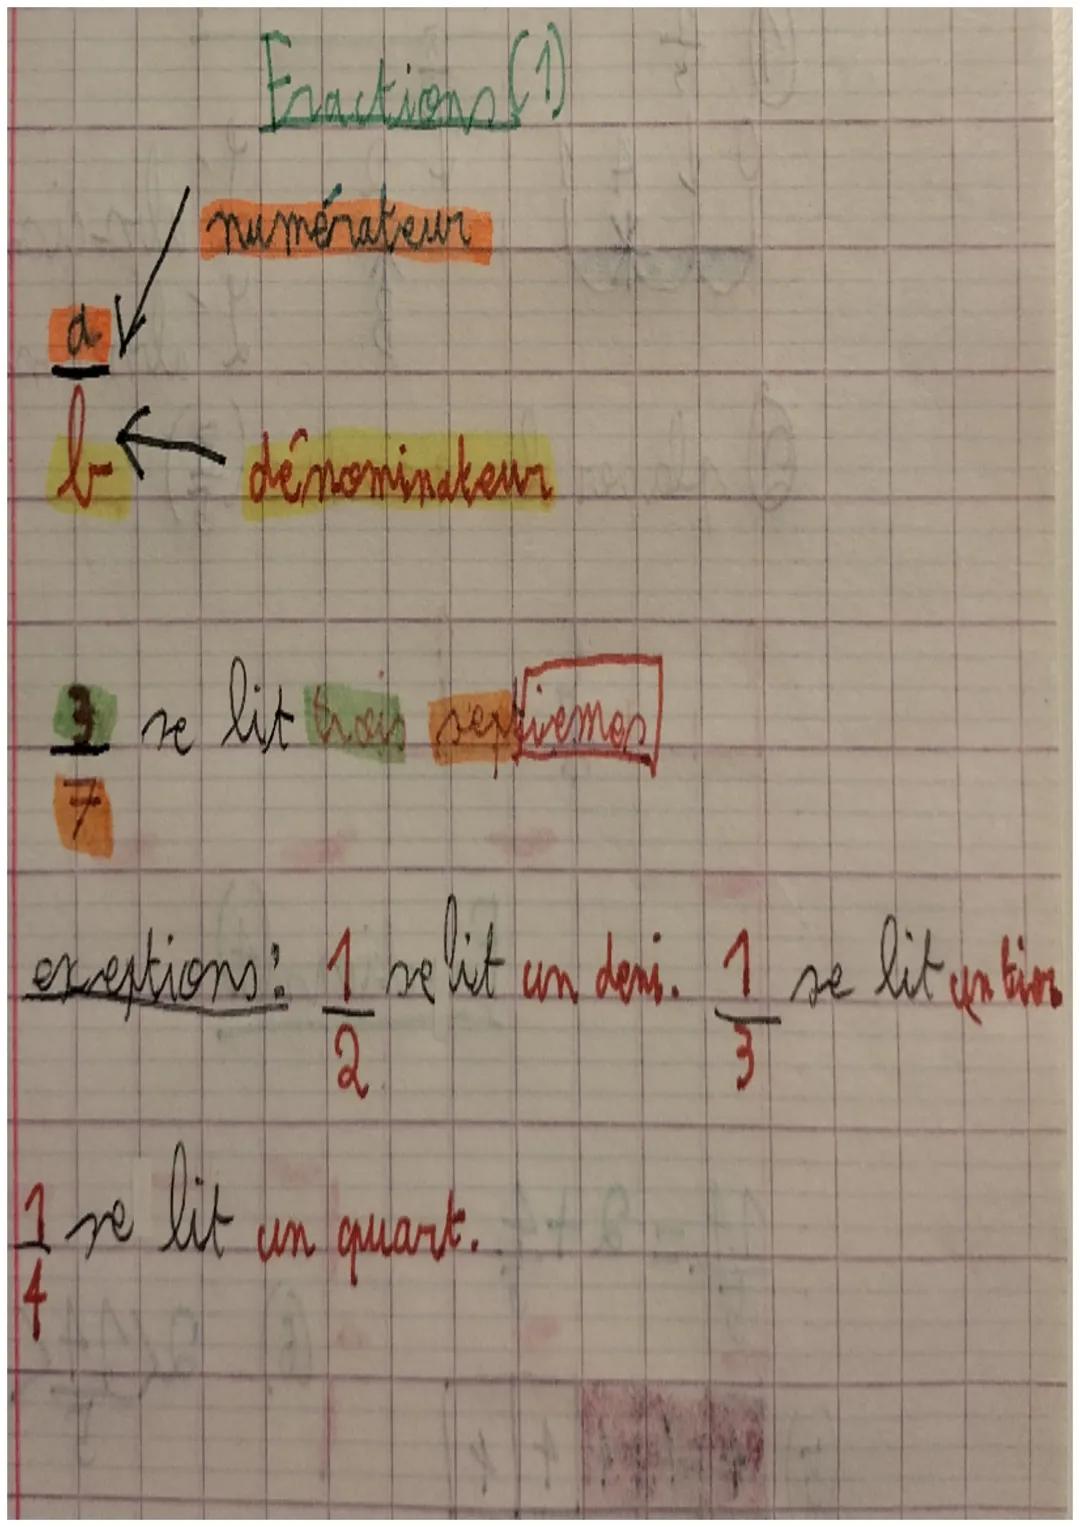 Fractions (1)
numérateur
a
b
dénominateur
3
7
se lit trois septiemes
exeptions: 1/2 se lit un demi. 1/3 se lit un tiers
1/4 se lit un quart.